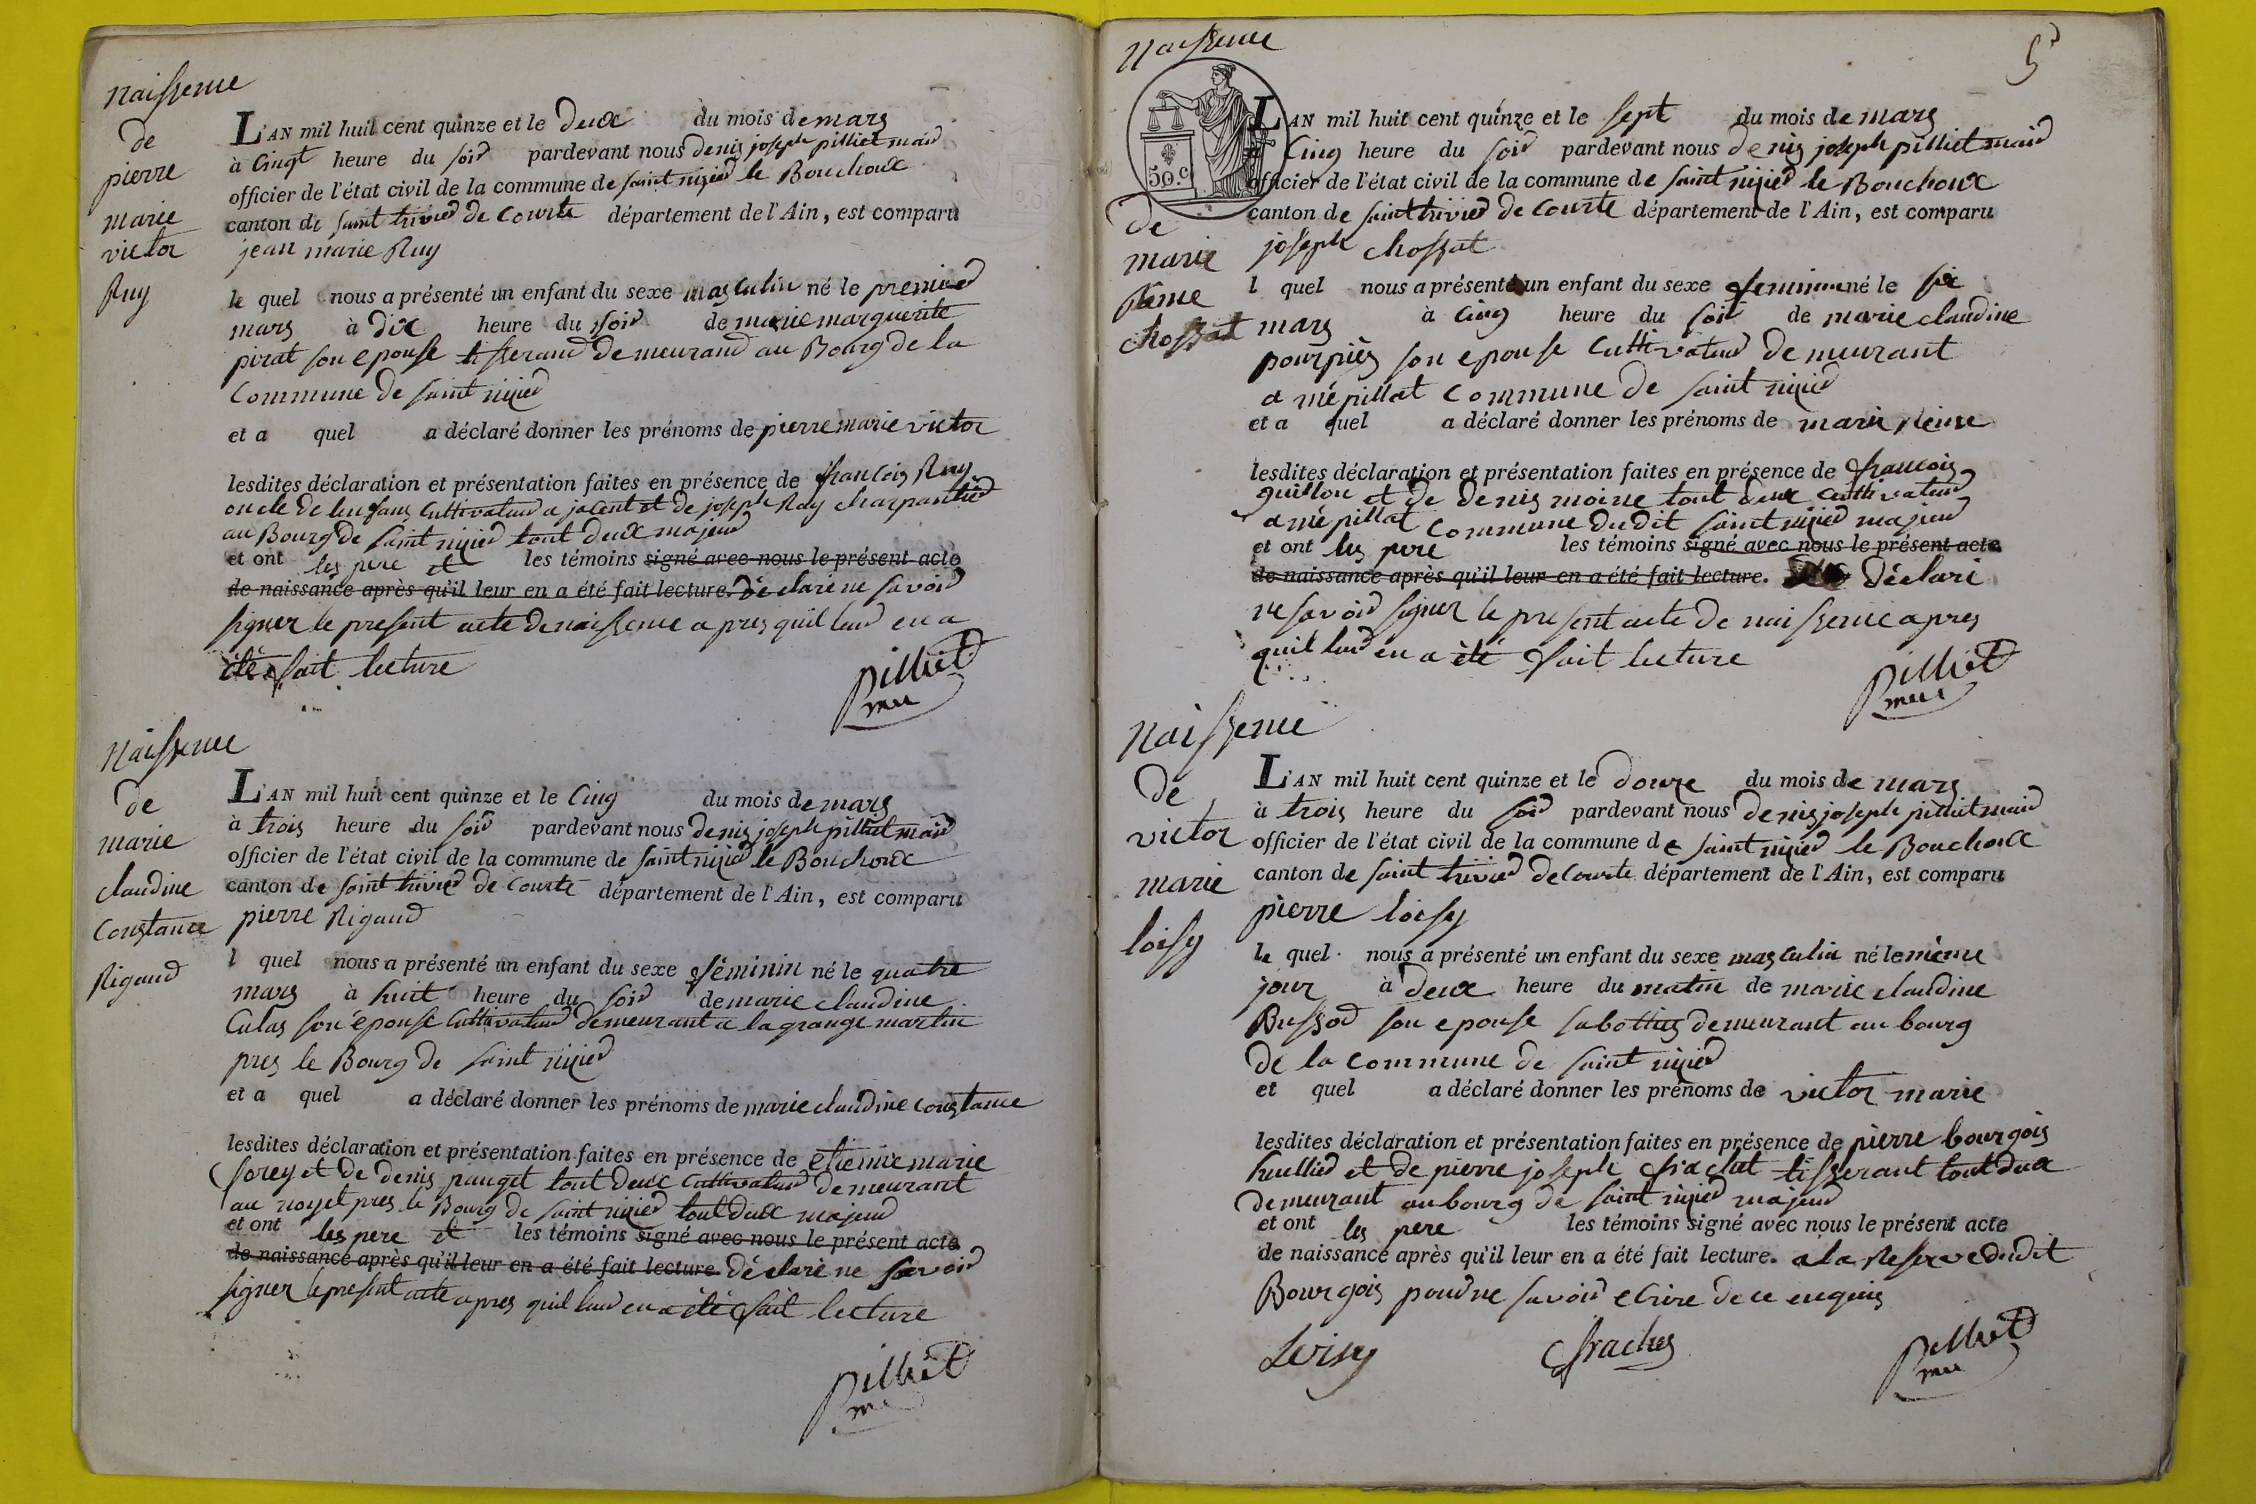 Naissence
de
pierre
marie
victor
Ruy
L'AN mil huit cent quinze et le deux du mois de mars
à Cinqt heure du soir pardevant nous denis joseph pilliet mair
officier de l'état civil de la commune de saint nizier le Bouchoux
canton de saint trivier de Courte département de l'Ain, est comparu
jean marie Ruy
le quel nous a présenté un enfant du sexe masculin né le premier
mars à dix heure du soir de marie marguerite
pirat son epouse tisserand demeurand au Bourg de la
Commune de saint nizier
et a quel a déclaré donner les prénoms de pierre marie victor
lesdites déclaration et présentation faites en présence de francois Ruy
oncle de lenfans Cultivateur a jacent et de joseph Ruy charpantier
au Bourg de saint nizier tout deux majeur
et ont les pere et les témoins signé avec nous le présent acte
de naissance après qu'il leur en a été fait lecture. déclaré ne savoir
signer le present acte de naissence apres quil leur en a
été fait lecture
pilliet
mer
Naissence
de
marie
claudine
Constance
Rigaud
L'AN mil huit cent quinze et le Cinq du mois de mars
à trois heure du soir pardevant nous denis joseph pilliet mair
officier de l'état civil de la commune de saint nizier le Bouchoux
canton de saint trivier de Courte département de l'Ain, est comparu
pierre Rigaud
l quel nous a présenté un enfant du sexe féminin né le quatre
mars à huit heure du soir de marie claudine
Culas son épouse Cultivateur demeurant a la grange martin
pres le Bourg de saint nizier
et a quel a déclaré donner les prénoms de marie claudine constance
lesdites déclaration et présentation faites en présence de etienne marie
forey et de denis pauget tout deux Cultivateur demeurant
au noyet pres le Bourg de saint nizier tout deux majeur
et ont les pere et les témoins signé avec nous le présent acte
de naissance après qu'il leur en a été fait lecture déclaré ne savoir
signer le present acte apres quil leur en a été fait lecture
pilliet
Naissence
5
50.c
de
marie
chossat
L'AN mil huit cent quinze et le sept du mois de mars
a Cinq heure du soir pardevant nous denis joseph pilliet mair
officier de l'état civil de la commune de saint nizier le Bouchoux
canton de saint trivier de Courte département de l'Ain, est comparu
joseph chossat
l quel nous a présenté un enfant du sexe feminin né le six
mars à cinq heure du soir de marie claudine
pourpies son epouse Cultivateur demeurant
a mépillat Commune de saint nizier
et a quel a déclaré donner les prénoms de marie
lesdites déclaration et présentation faites en présence de francois
guillon et de denis moine tout deux cultivateur
a mépillat Commune dudit saint nizier majeur
et ont les pere les témoins signé avec nous le présent acte
de naissance après qu'il leur en a été fait lecture. déclaré
ne savoir signer le present acte de naissence apres
quil leur en a été fait lecture
pilliet
mer
Naissence
de
victor
marie
loisy
L'AN mil huit cent quinze et le douze du mois de mars
à trois heure du soir pardevant nous denis joseph pilliet mair
officier de l'état civil de la commune de saint nizier le Bouchoux
canton de saint trivier de Courte département de l'Ain, est comparu
pierre loisy
le quel nous a présenté un enfant du sexe masculin né le même
jour à deux heure du matin de marie claudine
Bussod son epouse sabottier demeurant au bourg
de la commune de saint nizier
et quel a déclaré donner les prénoms de victor marie
lesdites déclaration et présentation faites en présence de pierre bourgois
huillier et de pierre joseph tisserant tout deux
demeurant au bourg de saint nizier majeur
et ont les pere les témoins signé avec nous le présent acte
de naissance après qu'il leur en a été fait lecture. a la Reserve dudit
Bourgois pour ne savoir écrire de ce enquis
Loisy
pilliet
mer